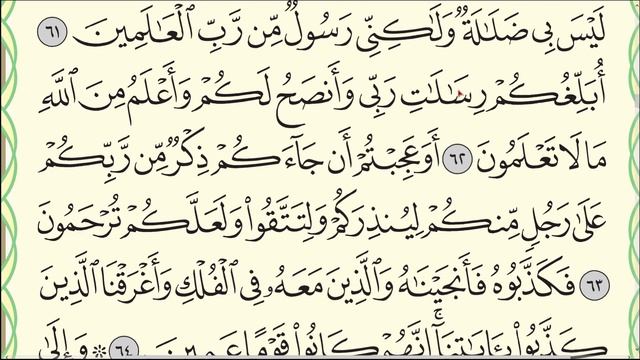 لَيْسَ بِى ضَلَـٰلَةٌ وَلَـٰكِنِّى رَسُولٌ مِّن رَّبِّ ٱلْعَـٰلَمِينَ ٦١
أُبَلِّغُكُمْ رِسَـٰلَـٰتِ رَبِّى وَأَنصَحُ لَكُمْ وَأَعْلَمُ مِنَ ٱللَّهِ
مَا لَا تَعْلَمُونَ ٦٢ أَوَعَجِبْتُمْ أَن جَآءَكُمْ ذِكْرٌ مِّن رَّبِّكُمْ
عَلَىٰ رَجُلٍ مِّنكُمْ لِيُنذِرَكُمْ وَلِتَتَّقُوا۟ وَلَعَلَّكُمْ تُرْحَمُونَ
٦٣ فَكَذَّبُوهُ فَأَنجَيْنَـٰهُ وَٱلَّذِينَ مَعَهُۥ فِى ٱلْفُلْكِ وَأَغْرَقْنَا ٱلَّذِينَ
كَذَّبُوا۟ بِـَٔايَـٰتِنَآ ۚ إِنَّهُمْ كَانُوا۟ قَوْمًا عَمِينَ ٦٤ ۞ وَإِلَىٰ